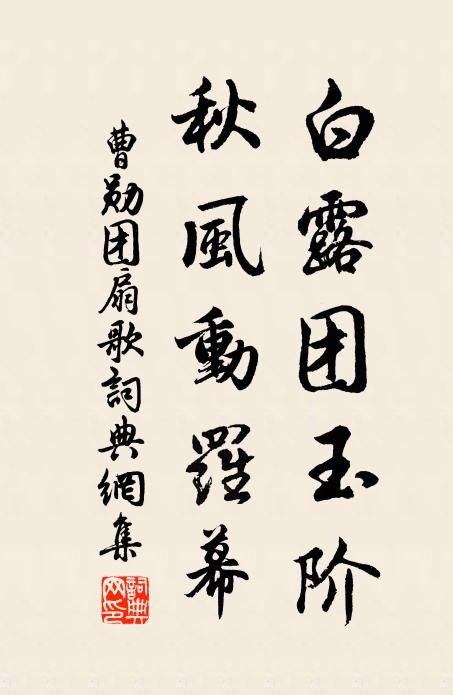 白露团玉阶
秋風動羅幕
曹勛团扇歌詞典網集
詞典网印